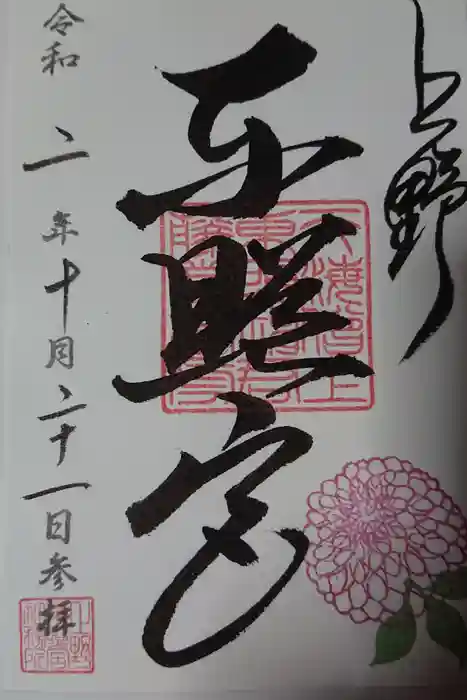 上野
東照宮
令和二年十月二十一日参拝